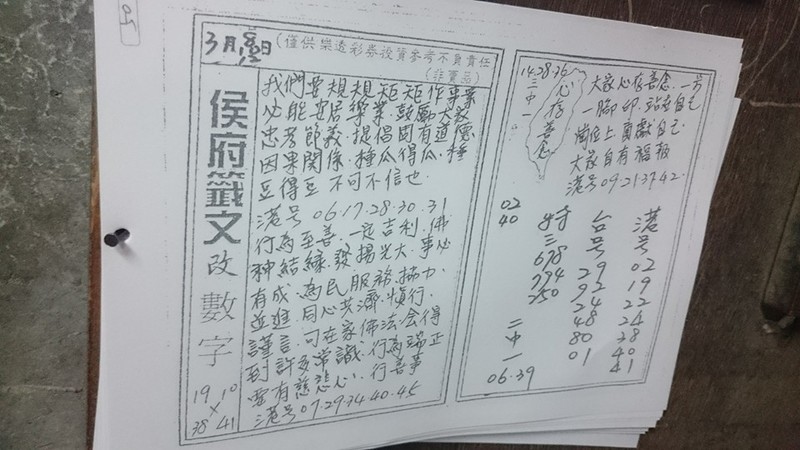 3月8日
12
(僅供樂透彩券投資參考不負責任
(非賣品)
侯府籤文
改數字
19 10
×
38 41
我們要規規矩矩作事業
必能安居樂業.鼓勵大家
忠孝節義.提倡固有道德.
因果關係.種瓜得瓜.種
豆得豆 不可不信也.
港号 06.17.28.30.31
行為至善.一定吉利.佛
神結緣.發揚光大.事必
有成 為民服務.協力.
並進 同心共濟.慎行.
謹言.可在家佛法会得
到許多常識.行為端正
要有慈悲心.行善事
港号07.29.34.40.45
14.28.36
三中一
心存善念
大家心存善念.一步
一腳印.站在自己
崗位上貢獻自己
大家自有福報
港号09.21.37.42.
港号
02
19
22
24
38
40
41
台号
29
92
24
48
80
01
特三
678
794
250
二中一
06.39
02
40